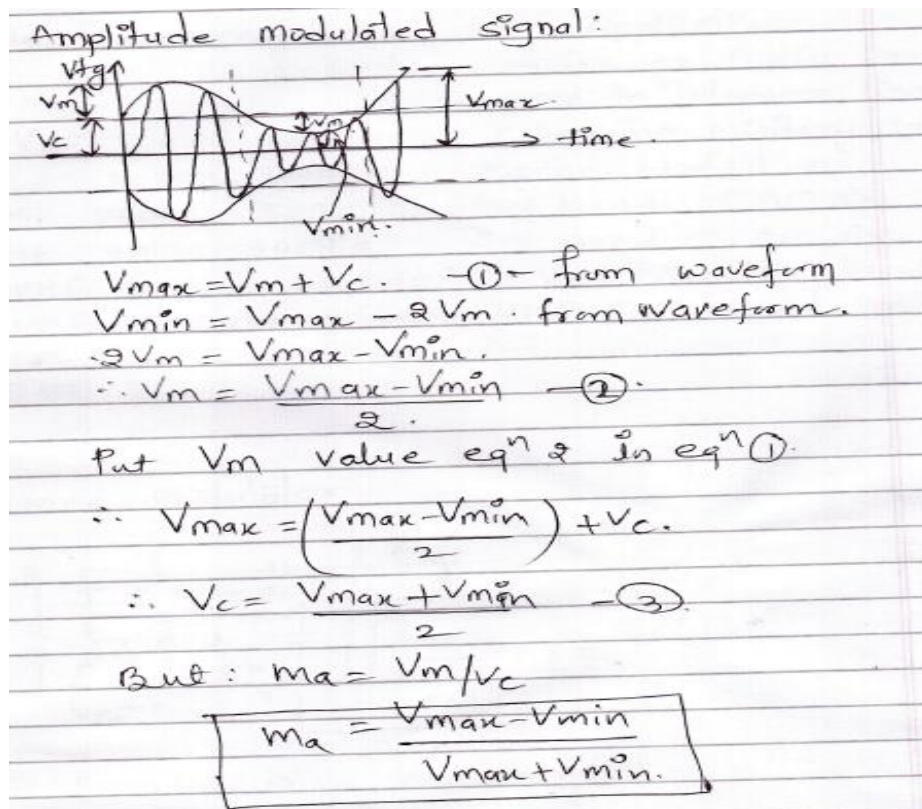 Amplitude modulated signal:
Vtg
Vm
Vc
Vm
Vm
Vmax
time.
Vmin.
Vmax = Vm + Vc. -①- from waveform
Vmin = Vmax - 2Vm. from waveform.
2Vm = Vmax - Vmin.
∴ Vm = (Vmax - Vmin)/2. -②.
Put Vm value eqⁿ 2 in eqⁿ ①.
∴ Vmax = ((Vmax - Vmin)/2) + Vc.
∴ Vc = (Vmax + Vmin)/2 -③
But : ma = Vm/Vc
ma = (Vmax - Vmin)/(Vmax + Vmin).